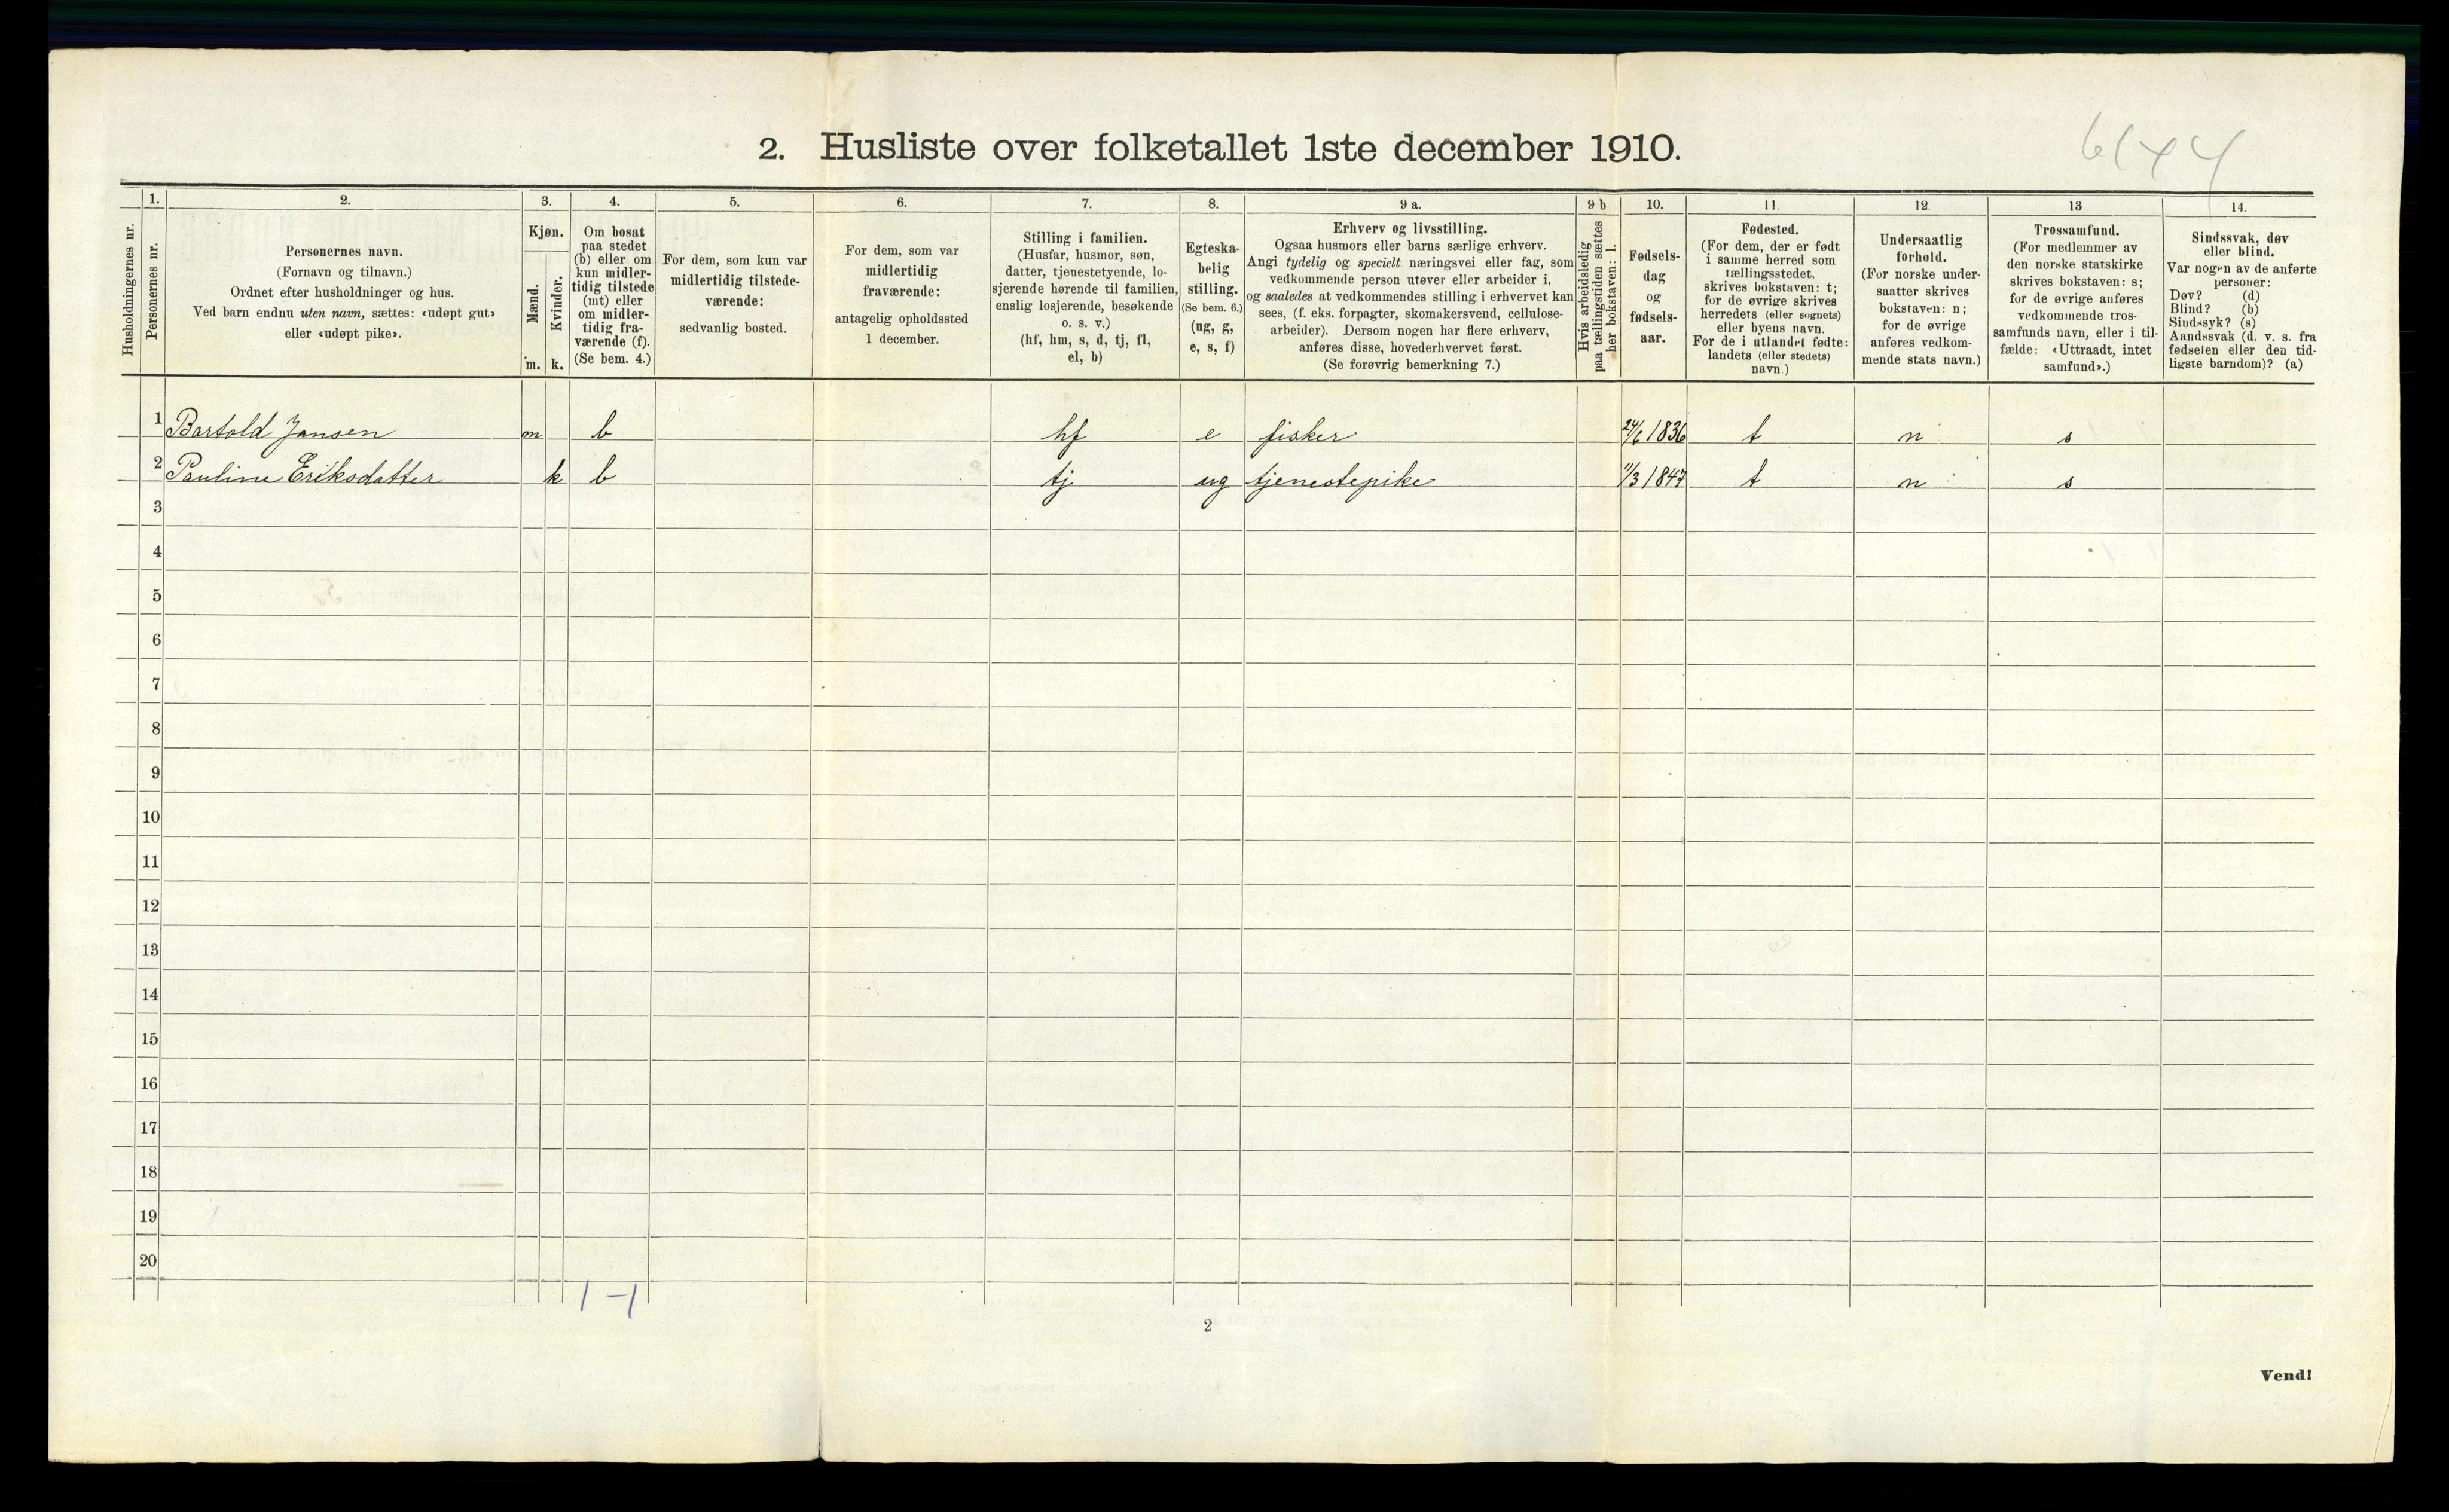 2. Husliste over folketallet 1ste december 1910.
Husholdningernes nr.
1.
Personernes nr.
2.
Personernes navn.
(Fornavn og tilnavn.)
Ordnet efter husholdninger og hus.
Ved barn endnu uten navn, sættes: «udøpt gut»
eller «udøpt pike».
3.
Kjøn.
Mænd.
m.
Kvinder.
k.
4.
Om bosat
paa stedet
(b) eller om
kun midler-
tidig tilstede
(mt) eller
om midler-
tidig fra-
værende (f).
(Se bem. 4.)
5.
For dem, som kun var
midlertidig tilstede-
værende:
sedvanlig bosted.
6.
For dem, som var
midlertidig
fraværende:
antagelig opholdssted
1 december.
7.
Stilling i familien.
(Husfar, husmor, søn,
datter, tjenestetyende, lo-
sjerende hørende til familien,
enslig losjerende, besøkende
o. s. v.)
(hf, hm, s, d, tj, fl,
el, b)
8.
Egteska-
belig
stilling.
(Se bem. 6.)
(ug, g,
e, s, f)
9 a.
Erhverv og livsstilling.
Ogsaa husmors eller barns særlige erhverv.
Angi tydelig og specielt næringsvei eller fag, som
vedkommende person utøver eller arbeider i,
og saaledes at vedkommendes stilling i erhvervet kan
sees, (f. eks. forpagter, skomakersvend, cellulose-
arbeider). Dersom nogen har flere erhverv,
anføres disse, hovederhvervet først.
(Se forøvrig bemerkning 7.)
9 b
Hvis arbeidsledig
paa tællingstiden sættes
her bokstaven: l.
10.
Fødsels-
dag
og
fødsels-
aar.
11.
Fødested.
(For dem, der er født
i samme herred som
tællingsstedet,
skrives bokstaven: t;
for de øvrige skrives
herredets (eller sognets)
eller byens navn.
For de i utlandet fødte:
landets (eller stedets)
navn.)
12.
Undersaatlig
forhold.
(For norske under-
saatter skrives
bokstaven: n;
for de øvrige
anføres vedkom-
mende stats navn.)
13
Trossamfund.
(For medlemmer av
den norske statskirke
skrives bokstaven: s;
for de øvrige anføres
vedkommende tros-
samfunds navn, eller i til-
fælde: «Uttraadt, intet
samfund».)
14.
Sindssvak, døv
eller blind.
Var nogen av de anførte
personer:
Døv? (d)
Blind? (b)
Sindssyk? (s)
Aandssvak (d. v. s. fra
fødselen eller den tid-
ligste barndom)? (a)
1 Bartold Jansen m b hf e fisker 24/6 1836 t n s
2 Pauline Eriksdatter k b tj ug tjenestepike 11/3 1847 t n s
3
4
5
6
7
8
9
10
11
12
13
14
15
16
17
18
19
20
1 - 1
2
Vend!